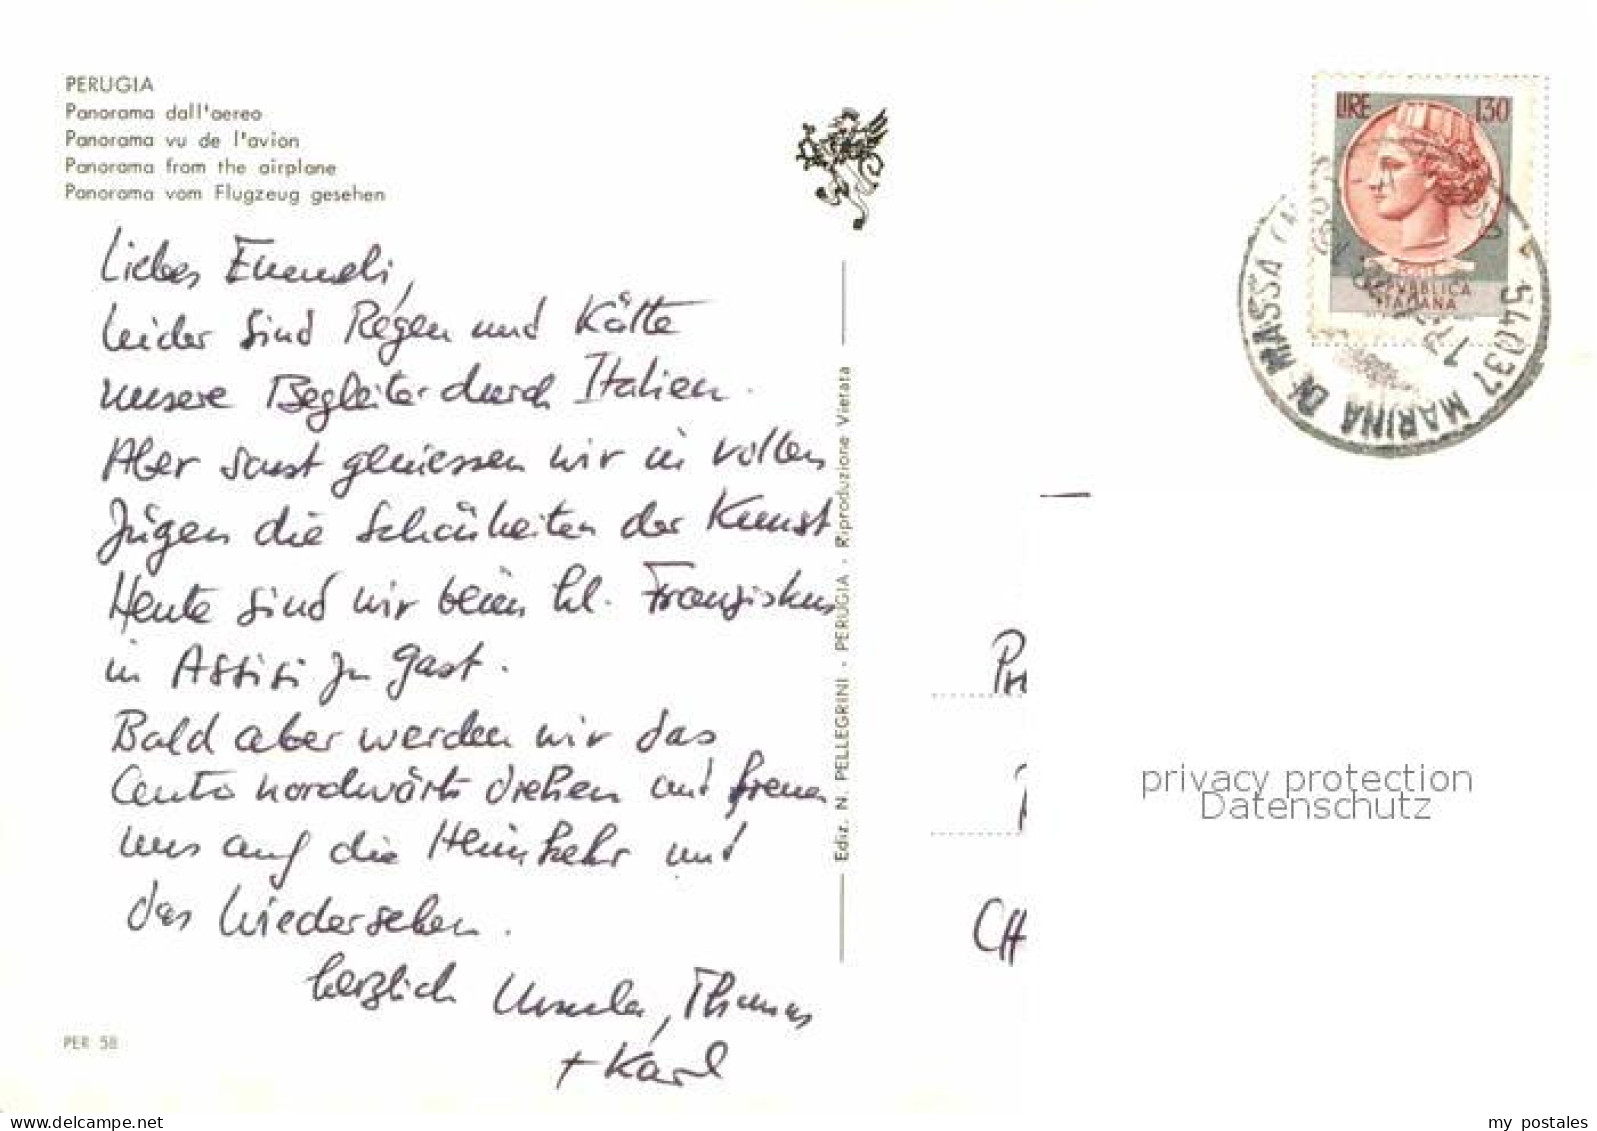 PERUGIA
Panorama dall'aereo
Panorama vu de l'avion
Panorama from the airplane
Panorama vom Flugzeug gesehen
Liebes Emmeli,
leider sind Regen und Kälte
unsere Begleiter durch Italien.
Aber sonst geniessen wir in vollen
Zügen die Schönheiten der Kunst
Heute sind wir beim hl. Franziskus
in Assisi zu Gast.
Bald aber werden wir das
Auto nordwärts drehen und freuen
uns auf die Heimkehr und
das Wiedersehen.
herzlich Ursula, Thomas
+ Karl
PER 58
Ediz. N. PELLEGRINI - PERUGIA - Riproduzione Vietata
LIRE 130
POSTE
REPVBBLICA
ITALIANA
54037 MARINA DI MASSA
CH
privacy protection
Datenschutz
www.delcampe.net
my_postales